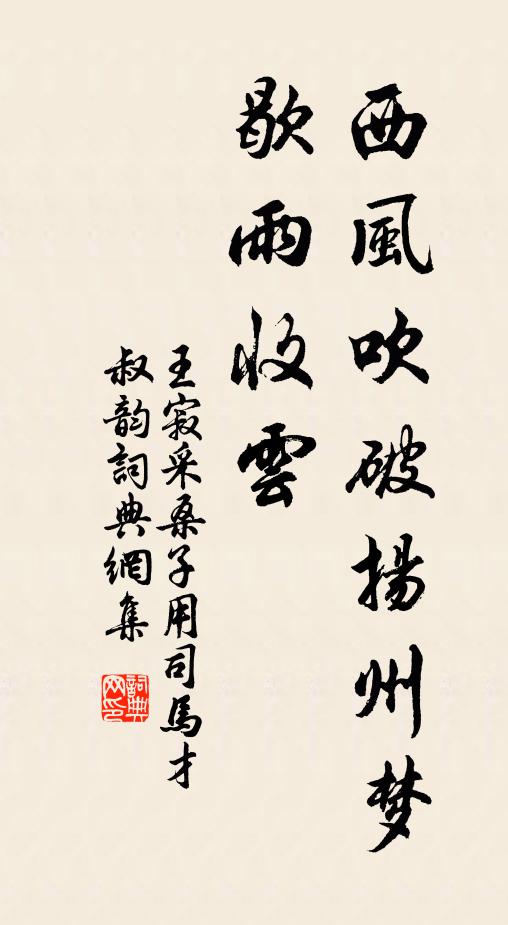 西風吹破揚州梦
歇雨收雲
王寂采桑子用司馬才
叔韵詞典網集
詞典网印